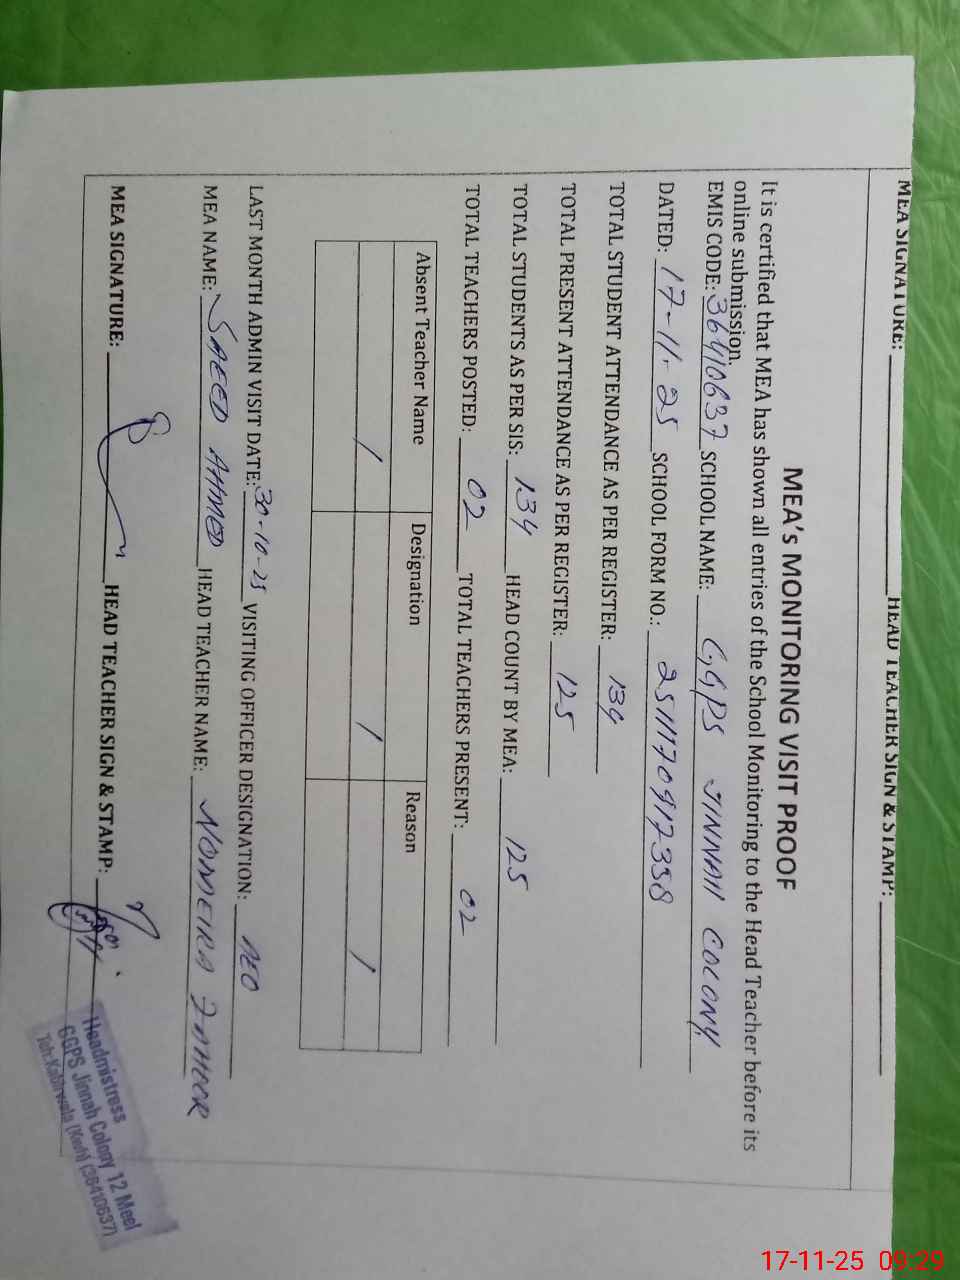 MEA SIGNATURE: HEAD TEACHER SIGN & STAMP:
MEA's MONITORING VISIT PROOF
It is certified that MEA has shown all entries of the School Monitoring to the Head Teacher before its
online submission.
EMIS CODE: 36410637 SCHOOL NAME: GGPS JINNAH COLONY
DATED: 17-11-25 SCHOOL FORM NO.: 2511170912358
TOTAL STUDENT ATTENDANCE AS PER REGISTER: 134
TOTAL PRESENT ATTENDANCE AS PER REGISTER: 125
TOTAL STUDENTS AS PER SIS: 134 HEAD COUNT BY MEA: 125
TOTAL TEACHERS POSTED: 02 TOTAL TEACHERS PRESENT: 02
Absent Teacher Name Designation Reason
/ / /
LAST MONTH ADMIN VISIT DATE: 30-10-25 VISITING OFFICER DESIGNATION: AEO
MEA NAME: SAEED AHMED HEAD TEACHER NAME: NOMEIRA
MEA SIGNATURE: HEAD TEACHER SIGN & STAMP:
Headmistress
GGPS Jinnah Colony 12 Meel
Teh: Kabirwala (Kwh) (36410637)
17-11-25 09:29